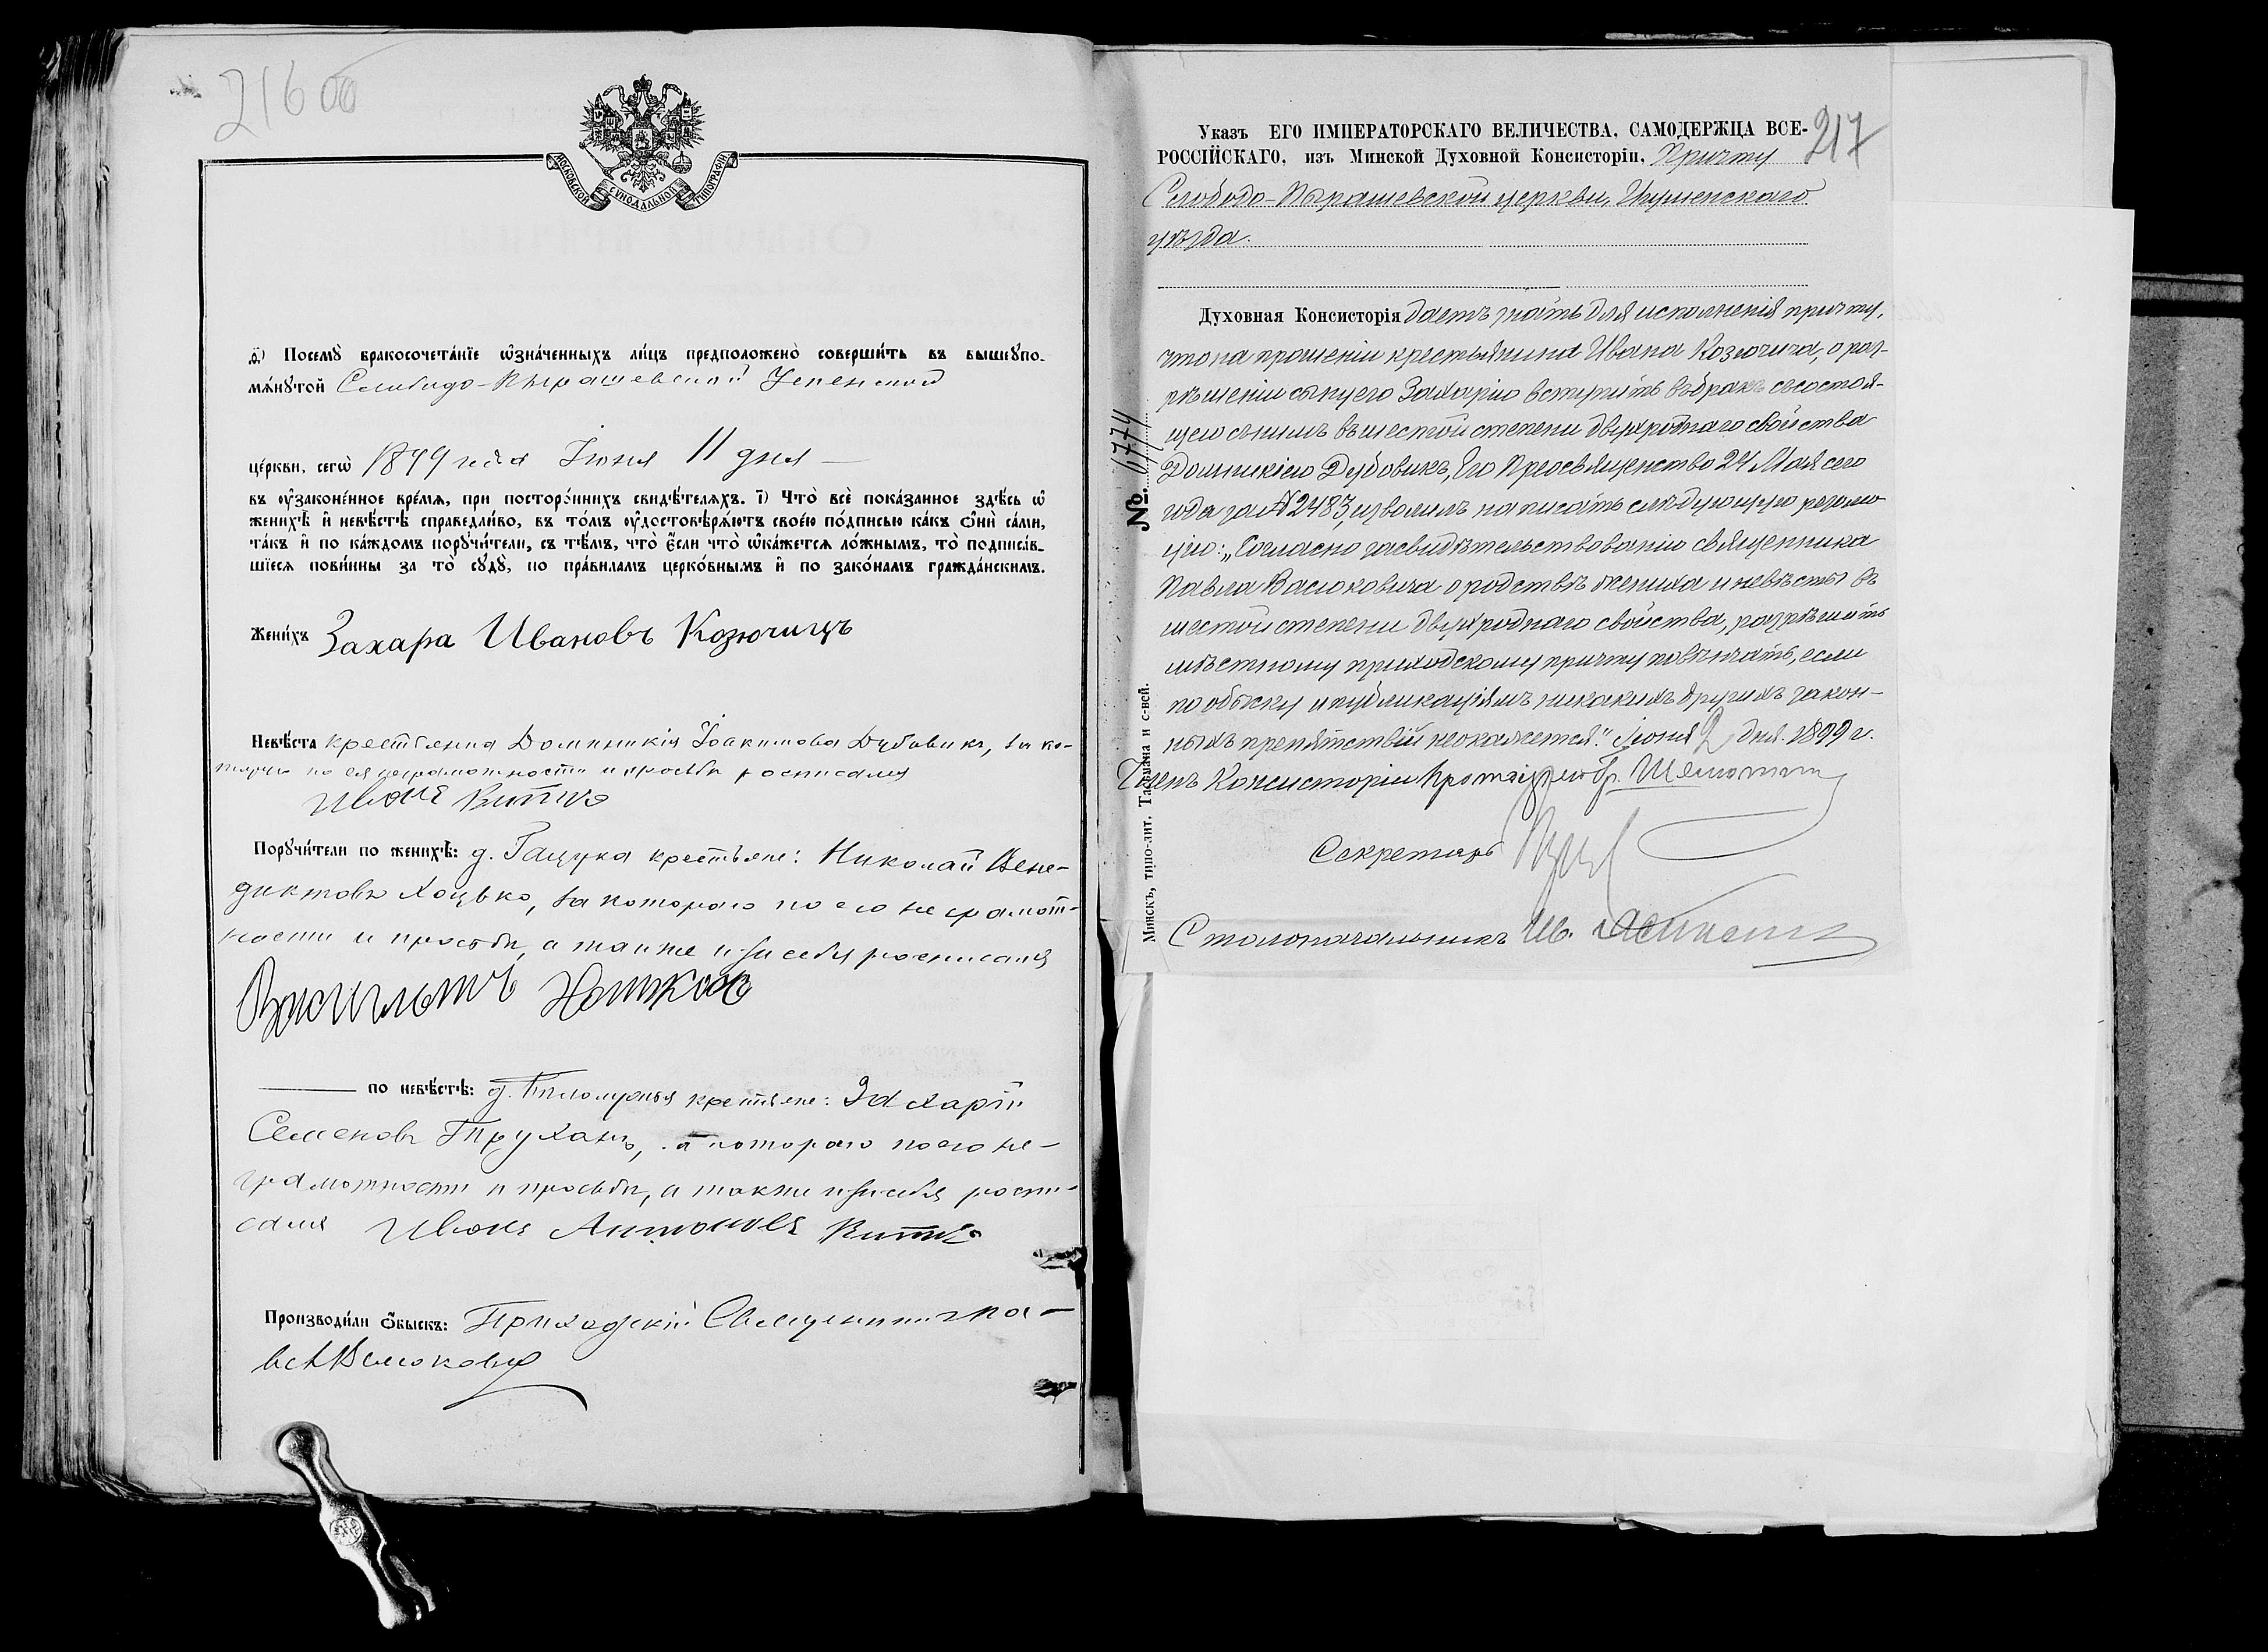 216 об
МОСКОВСКОЙ СѴНОДАЛЬНОЙ ТИПОГРАФІИ
д҃і) Посемꙋ̀ бракосочета́нїе ѡ҆зна́ченныхъ ли́цъ предположено̀ соверши́ть въ вышеꙋпо-
мѧ́нꙋтой Слободо-Пырашевской Успенской
це́ркви, сегѡ̀ 1899 года Іюня 11 дня
въ ᲂу҆зако́ненное вре́мѧ, при посторо́ннихъ свидѣ́телѧхъ. і҃) Что̀ всѐ пока́занное здѣ́сь ѡ҆
женихѣ̀ и҆ невѣ́стѣ справедли́во, въ то́мъ ᲂу҆достовѣрѧ́ютъ свое́ю по́дписью ка́къ ѻ҆нѝ са́ми,
та́къ и҆ по ка́ждомъ порꙋчи́тели, съ тѣ́мъ, что̀ є҆́сли что̀ ѡ҆ка́жетсѧ ло́жнымъ, то̀ подписа́в-
шїесѧ пови́нны за то̀ сꙋдꙋ̀, по пра́виламъ церко́внымъ и҆ по зако́намъ гражда́нскимъ.
Жени́хъ Захара Ивановъ Козючицъ
Невѣ́ста крестьянка Доминикія Іоакимова Дубовикъ, за ко-
торую по ея неграмотности и просьбѣ росписался
Иванъ Витко
Порꙋчи́тели по женихѣ̀: д. Гацука крестьяне: Николай Вене-
диктовъ Хоцько, за котораго по его неграмот-
ности и просьбѣ, а также и за себя росписался
по невѣ́стѣ: д. крестьяне: Захарій
Семеновъ Труханъ, за котораго по его не-
грамотности и просьбѣ, а также и за себя роспи-
сался Иванъ Антоновъ Витко
Производи́ли ѻ҆́быскъ: Приходскій Священникъ Па-
велъ Васюковичъ
217
Указъ ЕГО ИМПЕРАТОРСКАГО ВЕЛИЧЕСТВА, САМОДЕРЖЦА ВСЕ-
РОССІЙСКАГО, изъ Минской Духовной Консисторіи, Причту
Слободо-Пырашевской церкви, Игуменскаго
уѣзда.
Духовная Консисторія даетъ знать для исполненія причту,
что на прошеніи крестьянина Ивана Козючича, о раз-
рѣшеніи сыну его Захарію вступить въ бракъ съ состоя-
щею съ нимъ въ шестой степени двухроднаго свойства
Доминикіею Дубовикъ, Его Преосвященство 24 Мая сего
года за № 2483, изволилъ написать слѣдующую резолю-
цію: „Согласно засвидѣтельствованію священника
Павла Васюковича о родствѣ жениха и невѣсты въ
шестой степени двухроднаго свойства, разрѣшать
мѣстному приходскому причту повѣнчать, если
по обыску и публикаціямъ никакихъ другихъ закон-
ныхъ препятствій не окажется." Іюня 2 дня 1899 г.
Членъ Консисторіи Протоіерей
Секретарь
Столоначальникъ
№. 6774
Минскъ, типо-лит. Тасьмана и с-вей.